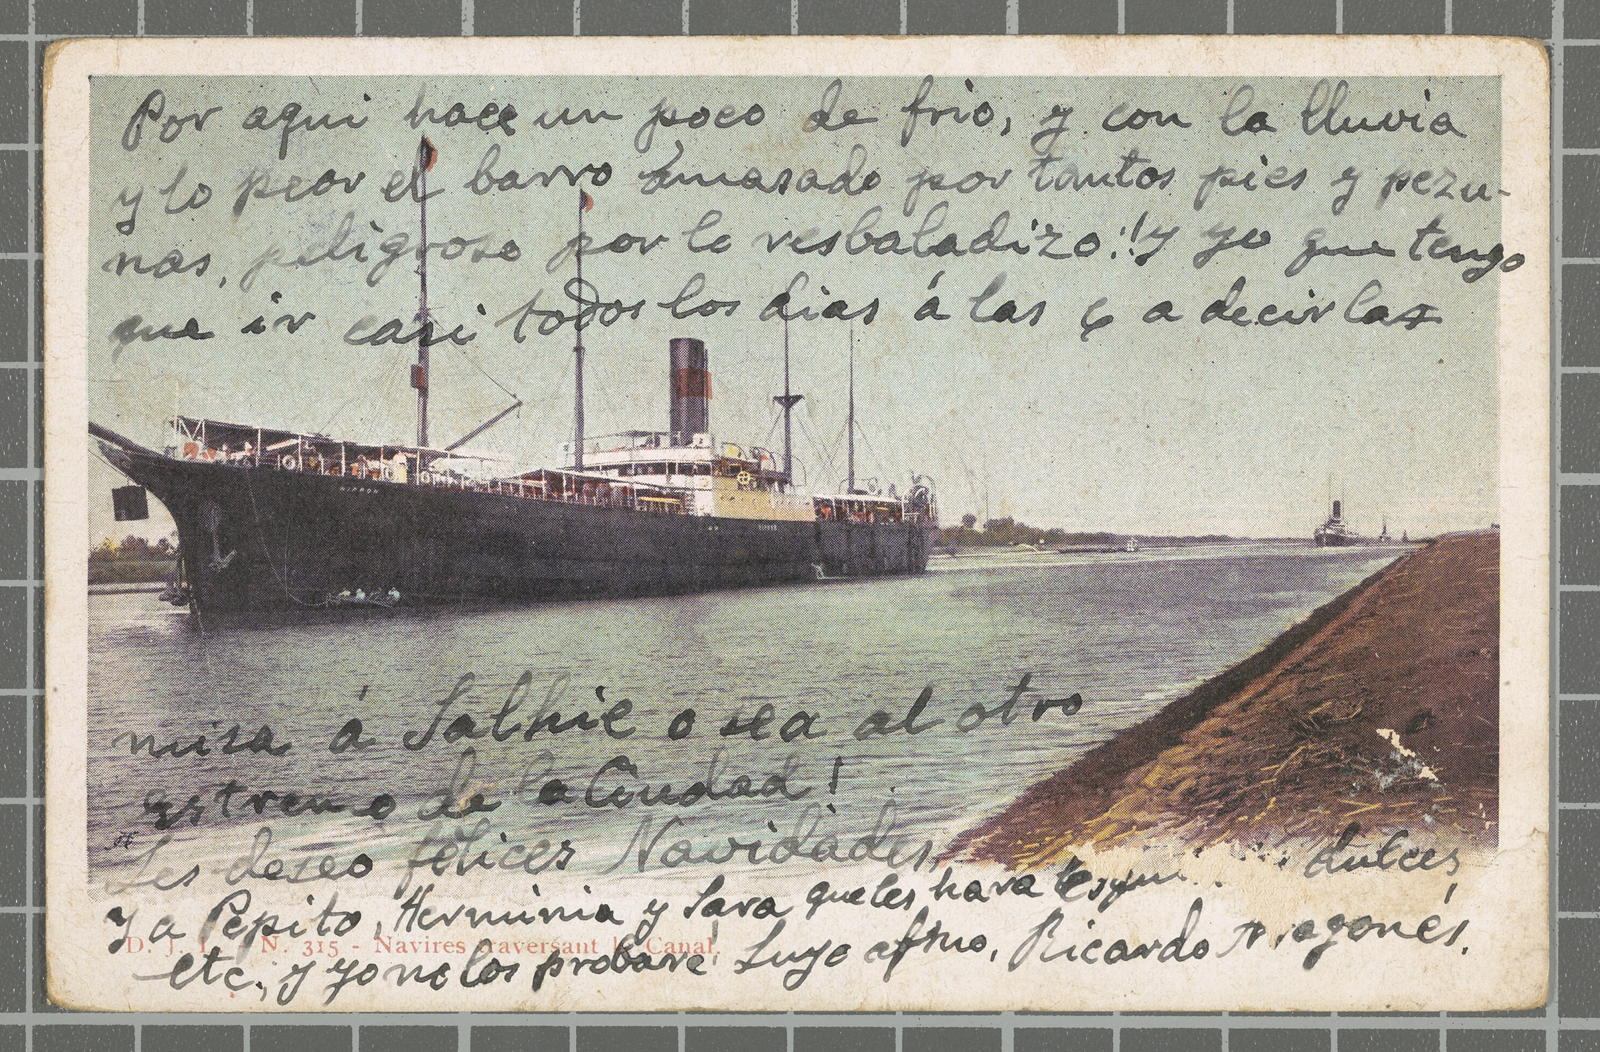 Por aqui hace un poco de frio, y con la lluvia
y lo peor el barro amasado por tantos pies y pezu-
nas, peligroso por lo resbaladizo!! y yo que tengo
que ir casi todos los dias á las 6 a decirlas
NIPPON
misa á Salhie o sea al otro
estremo de la Ciudad!
Les deseo felices Navidades,
y a Pepito, Herminia y Sara que les hara dulces,
D. N. 315 - Navires traversant le Canal.
etc., y yo no los probaré! Suyo afmo, Ricardo